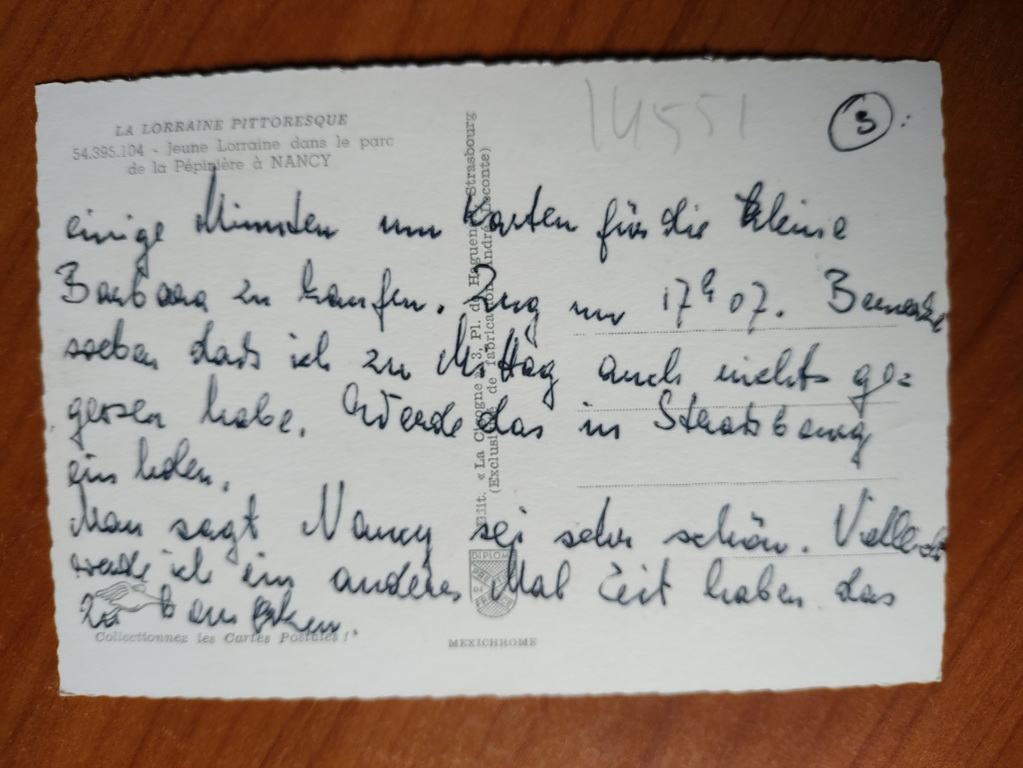 14551
3
LA LORRAINE PITTORESQUE
54.395.104 - Jeune Lorraine dans le parc
de la Pépinière à NANCY
einige Minuten um Karten für die kleine
Barbara zu kaufen. Zug um 17h 07. Bemerke
soeben dass ich zu Mittag auch nichts ge=
gessen habe. Werde das in Strassbourg
ein holen.
Man sagt Nancy sei sehr schön. Vielleicht
werde ich ein anderes Mal Zeit haben das
zu
Edit. « La Cigogne » 3, Pl. de Haguenau Strasbourg
(Exclusivité de fabrication André Leconte)
DIPLOM
Collectionnez les Cartes Postales !
MEXICHROME